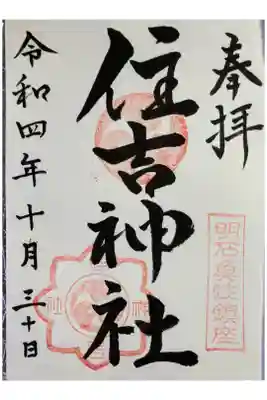 奉拝
住吉神社
令和四年十月三十日
明石魚住鎮座